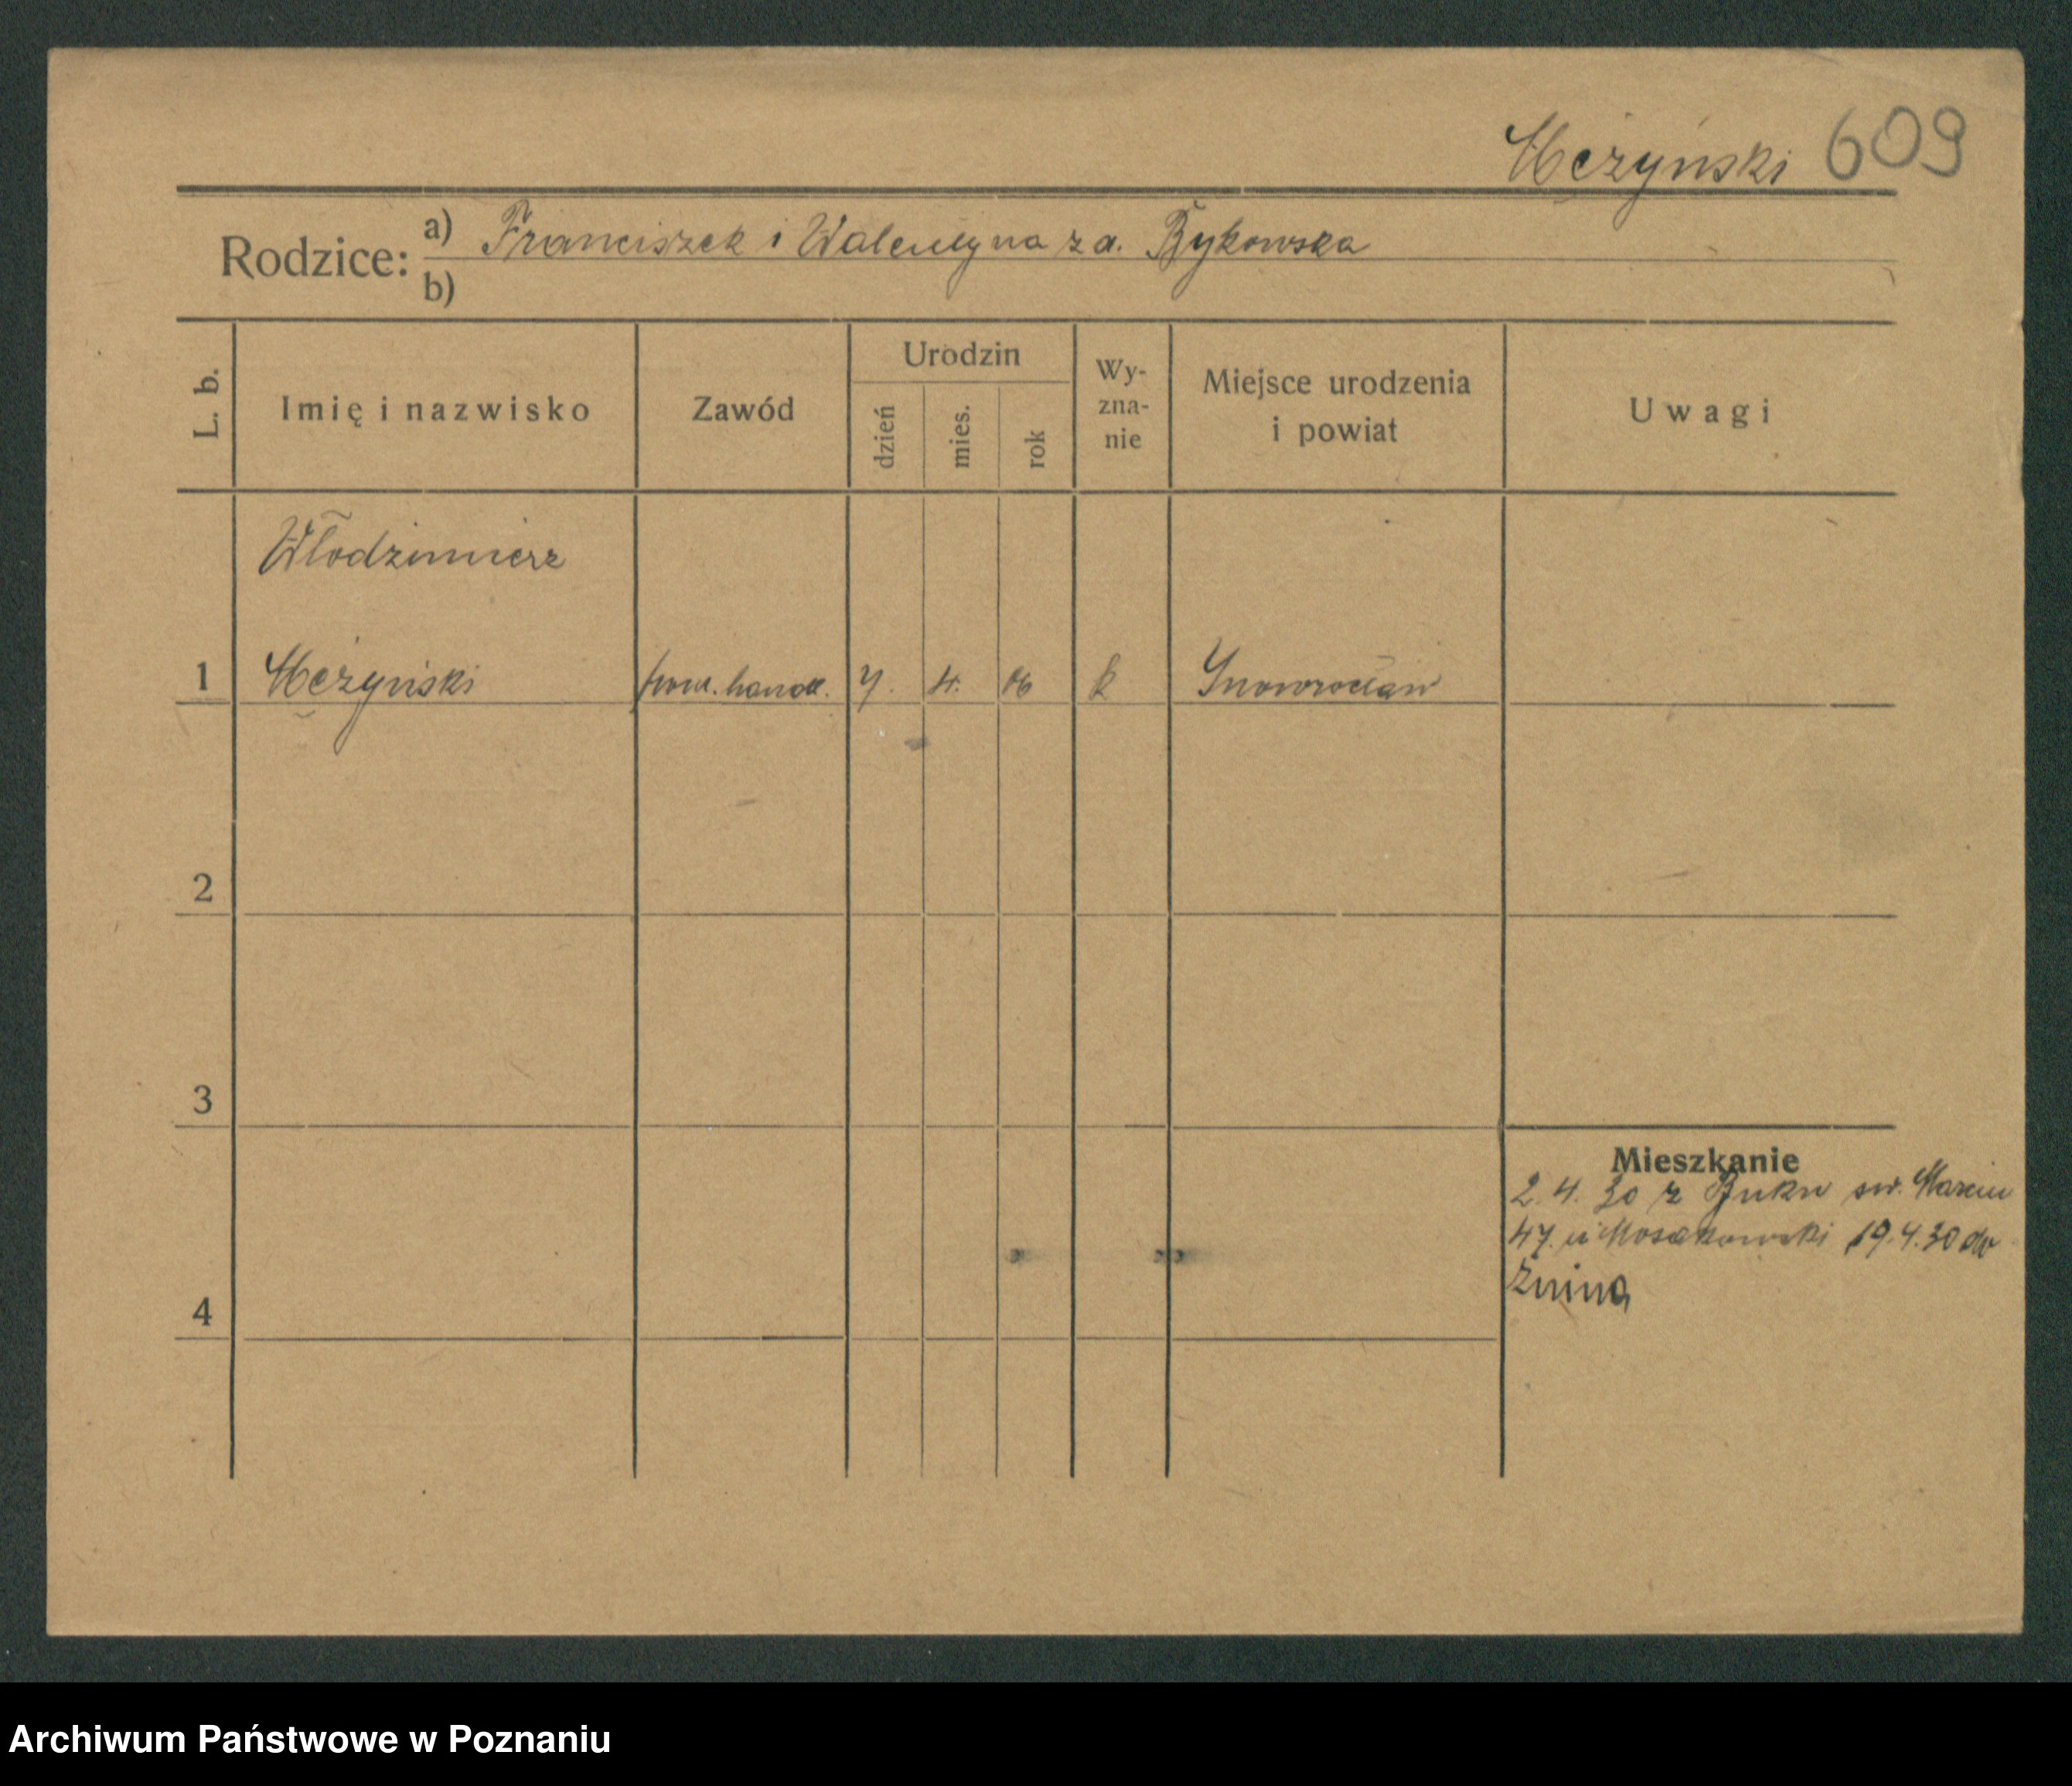 Mężyński 609
Rodzice: a) Franciszek i Walentyna za. Bykowska
b)
L. b.
Imię i nazwisko
Zawód
Urodzin
dzień
mies.
rok
Wy-
zna-
nie
Miejsce urodzenia
i powiat
Uwagi
Włodzimierz
1 Mężyński pom. handl. 7. 4. 06 k Inowrocław
2
3
4
Mieszkanie
2. 4. 30 z Buku św. Marcin
47. u Mosakowski 19. 4. 30 do
Żnina
Archiwum Państwowe w Poznaniu